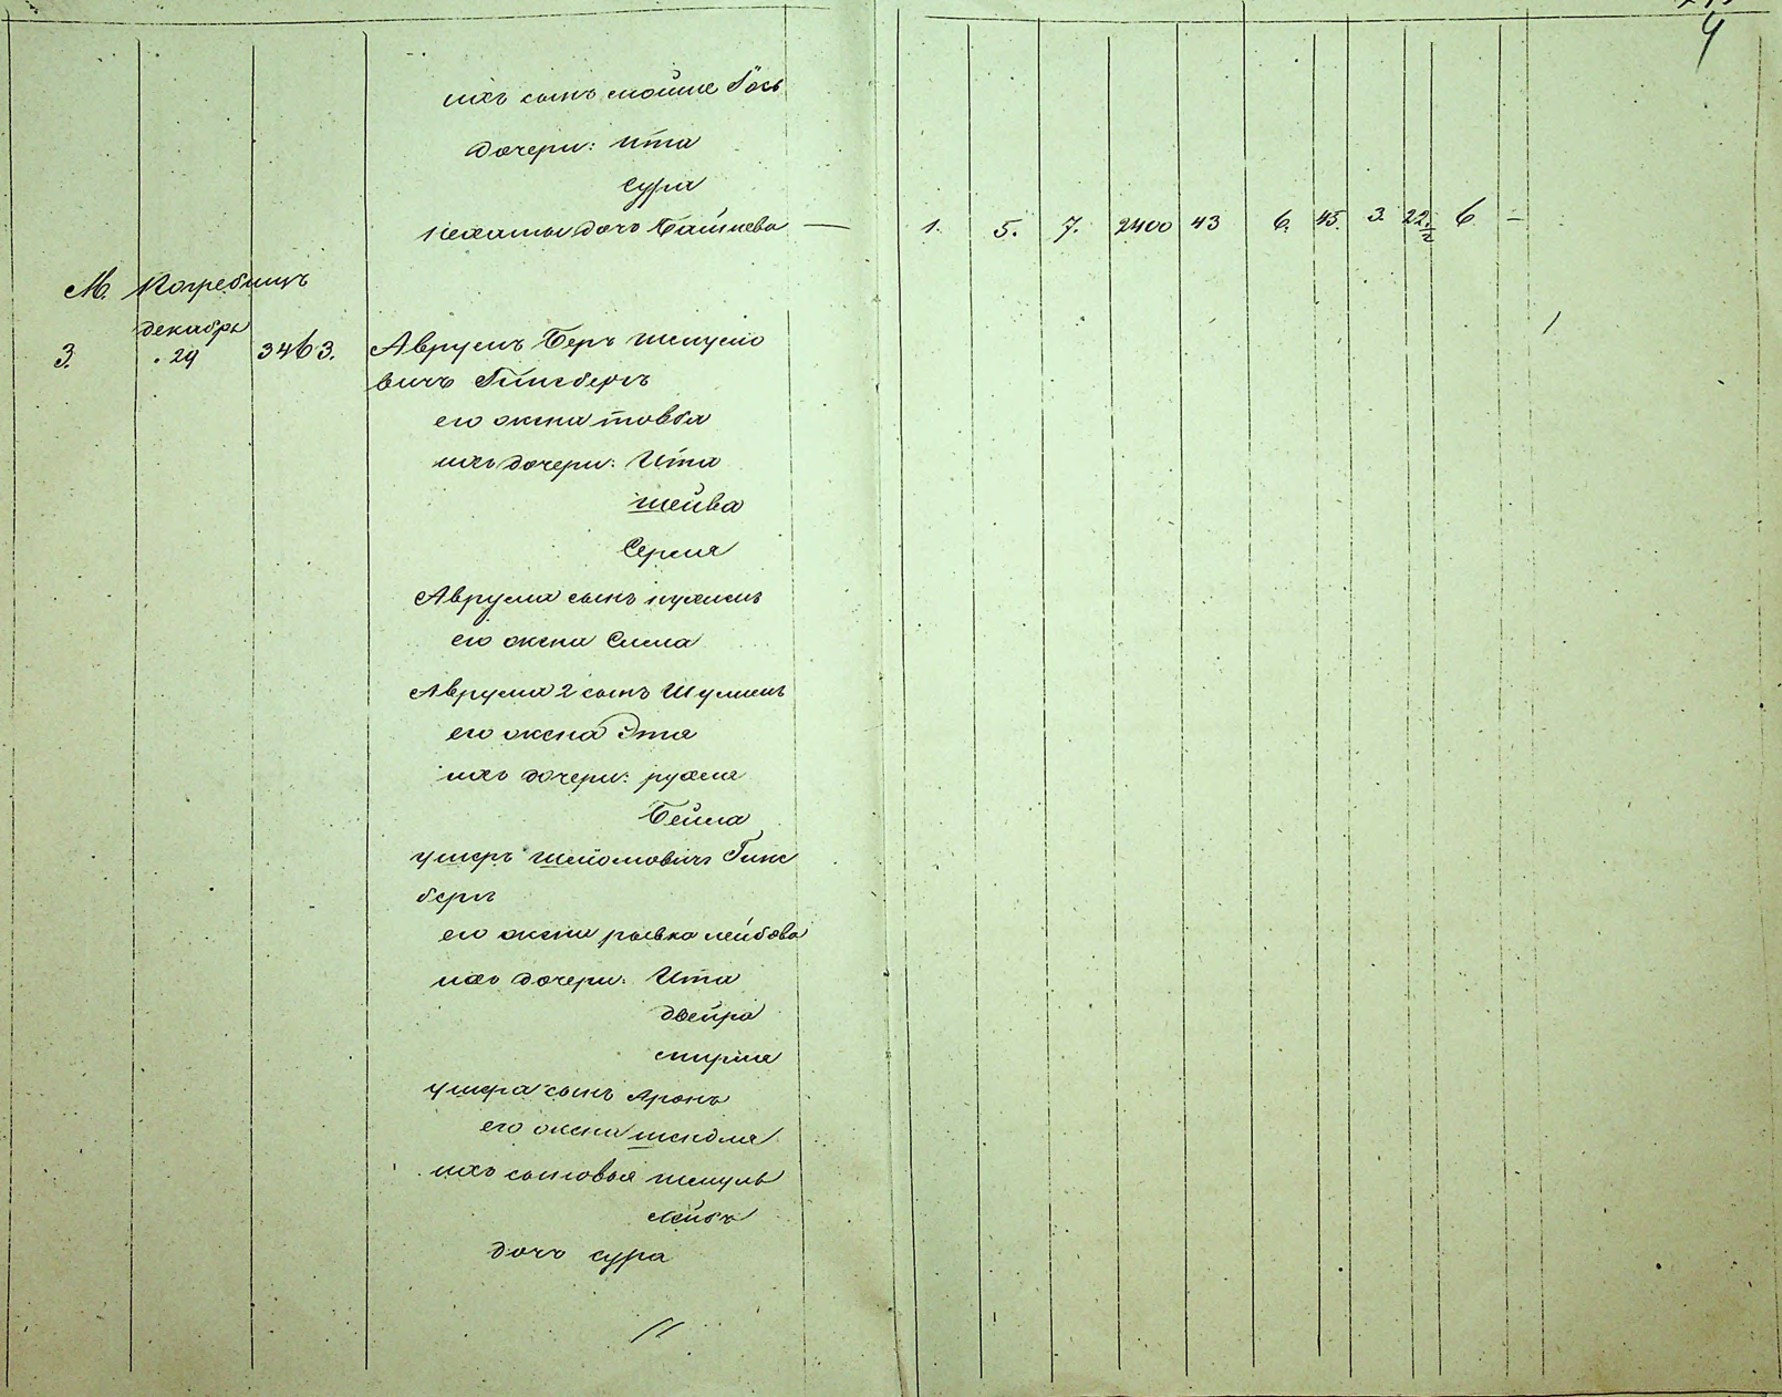 ихъ сынъ Мойше Іось
дочери: Ита
Сура
Нехамы дочь Башиева — 1. 5. 7. 2400 43 6. 45. 3. 22 1/2 6 —
М. Погребищъ
декабря
3. 29 3463. Аврумъ Беръ Шмулео
вичъ Гинсбергъ
его жена Товба
ихъ дочери: Ита
Шейва
Серля
Аврума сынъ Нухимъ
его жена Сима
Аврума 2 сынъ Шулимъ
его жена Этя
ихъ дочери: Рухля
Бейла
Ушеръ Шлиомовичъ Гинс
бергъ
его жена Рывка Лейбова
ихъ дочери: Ита
Двейра
Мирля
Ушера сынъ Аронъ
его жена Шендля
ихъ сыновья Шмуль
Лейбъ
дочь Сура
4